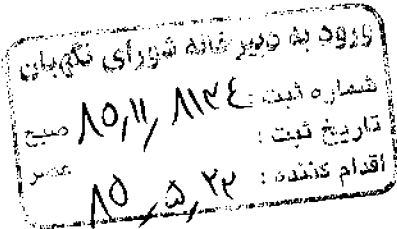 ورود به دبیرخانه شورای نگهبان
شماره ثبت: ۸۵٫۱۱٫۸۱۳۴ صبح
تاریخ ثبت : عصر
اقدام کننده : ۸۵٫۵٫۲۲